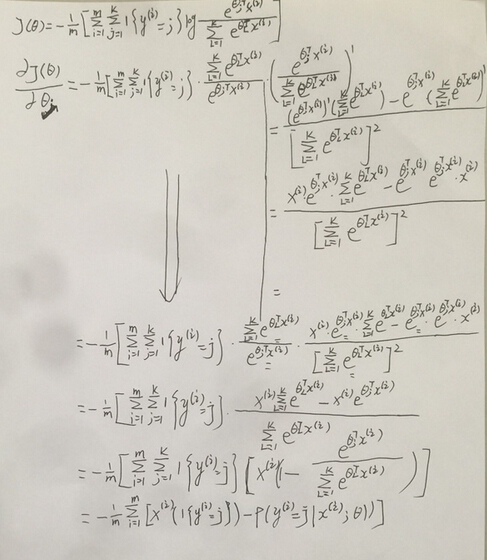 J(θ)=-1/m[∑_{i=1}^{m} ∑_{j=1}^{K} 1{y^{(i)}=j} log e^{θ_j^T x^{(i)}} / ∑_{L=1}^{K} e^{θ_L^T x^{(i)}}]
∂J(θ)/∂θ_j = -1/m[∑_{i=1}^{m} ∑_{j=1}^{K} 1{y^{(i)}=j} · ∑_{L=1}^{K} e^{θ_L^T x^{(i)}} / e^{θ_j^T x^{(i)}} · (e^{θ_j^T x^{(i)}} / ∑_{L=1}^{K} e^{θ_L^T x^{(i)}})'
= (e^{θ_j^T x^{(i)}})' (∑_{L=1}^{K} e^{θ_L^T x^{(i)}}) - e^{θ_j^T x^{(i)}} (∑_{L=1}^{K} e^{θ_L^T x^{(i)}})' / [∑_{L=1}^{K} e^{θ_L^T x^{(i)}}]^2
= x^{(i)} · e^{θ_j^T x^{(i)}} · ∑_{L=1}^{K} e^{θ_L^T x^{(i)}} - e^{θ_j^T x^{(i)}} e^{θ_j^T x^{(i)}} · x^{(i)} / [∑_{L=1}^{K} e^{θ_L^T x^{(i)}}]^2
=
= -1/m[∑_{i=1}^{m} ∑_{j=1}^{K} 1{y^{(i)}=j} · ∑_{L=1}^{K} e^{θ_L^T x^{(i)}} / e^{θ_j^T x^{(i)}} · x^{(i)} · e^{θ_j^T x^{(i)}} · ∑_{L=1}^{K} e^{θ_L^T x^{(i)}} - e^{θ_j^T x^{(i)}} · e^{θ_j^T x^{(i)}} · x^{(i)} / [∑_{L=1}^{K} e^{θ_L^T x^{(i)}}]^2
= -1/m[∑_{i=1}^{m} ∑_{j=1}^{K} 1{y^{(i)}=j} · x^{(i)} ∑_{L=1}^{K} e^{θ_L^T x^{(i)}} - x^{(i)} e^{θ_j^T x^{(i)}} / ∑_{L=1}^{K} e^{θ_L^T x^{(i)}}
= -1/m[∑_{i=1}^{m} ∑_{j=1}^{K} 1{y^{(i)}=j} [x^{(i)}(1 - e^{θ_j^T x^{(i)}} / ∑_{L=1}^{K} e^{θ_L^T x^{(i)}})]]
= -1/m ∑_{i=1}^{m} [x^{(i)}(1{y^{(i)}=j}) - P(y^{(i)}=j|x^{(i)};θ))]